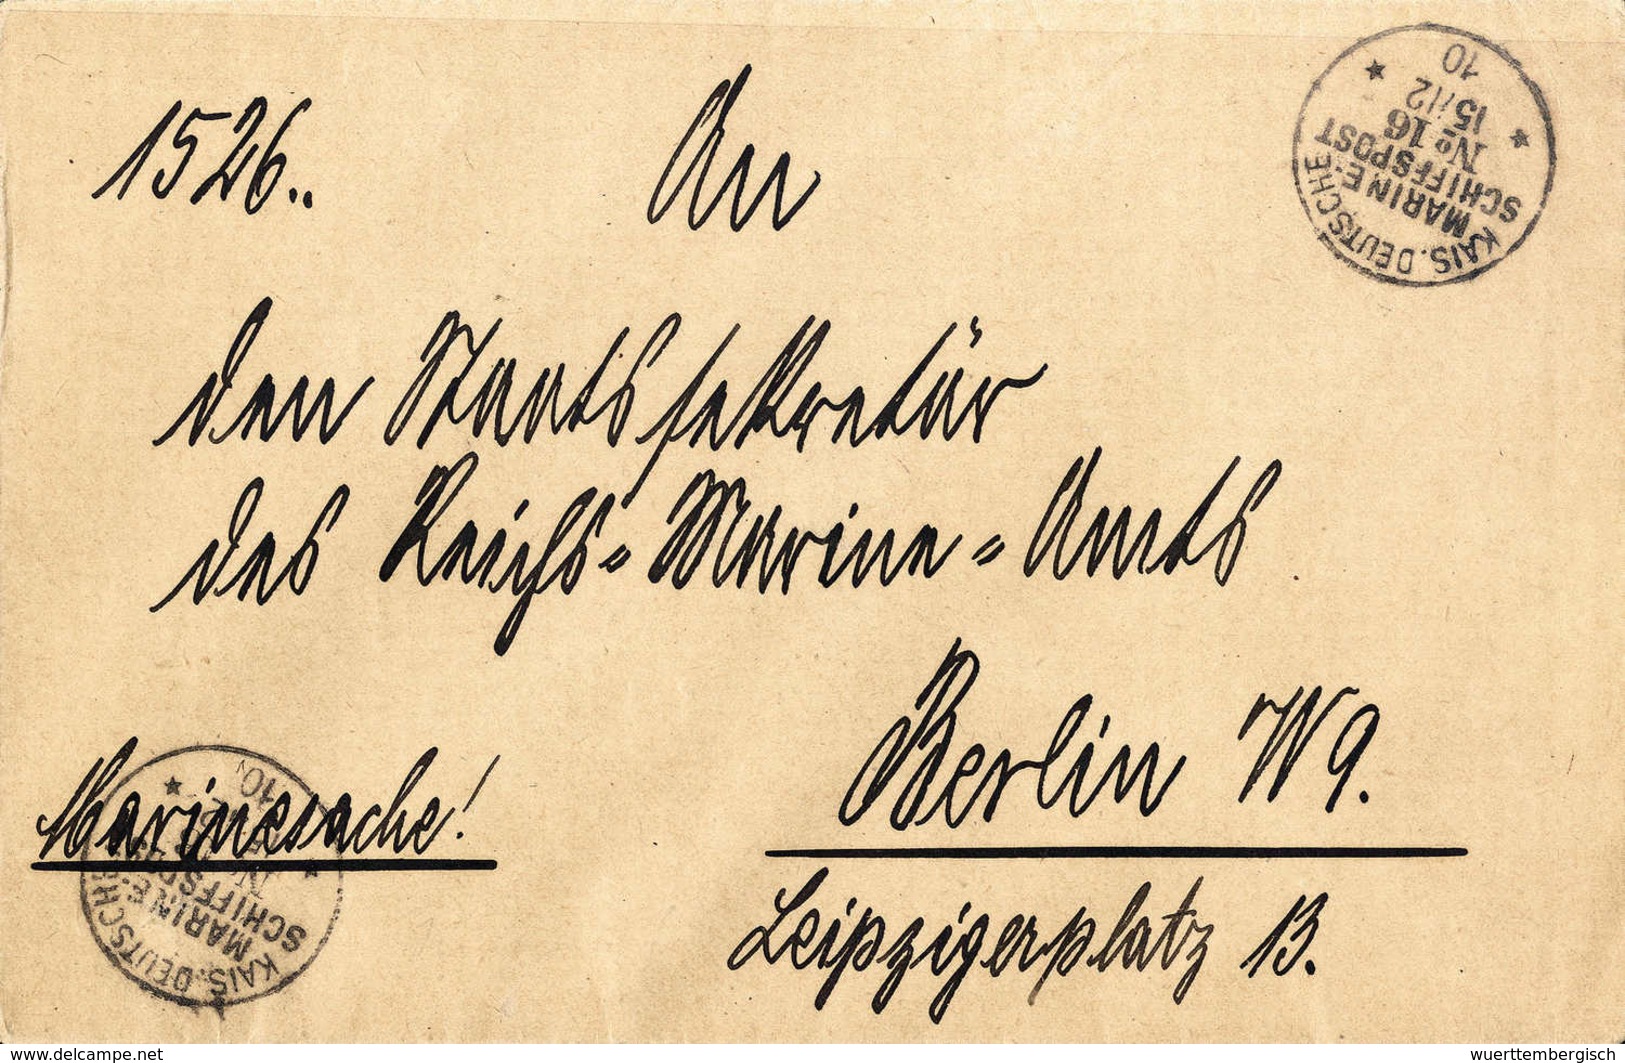 1526..
An
den Staatssekretär
des Reichs=Marine=Amts
Berlin W 9.
Leipzigerplatz 13.
Marinesache!
KAIS. DEUTSCHE
MARINE-
SCHIFFSPOST
No 16
15/12
10
KAIS. DEUTSCHE
MARINE-
SCHIFFSPOST
No
10
www.delcampe.net
wuerttembergisch